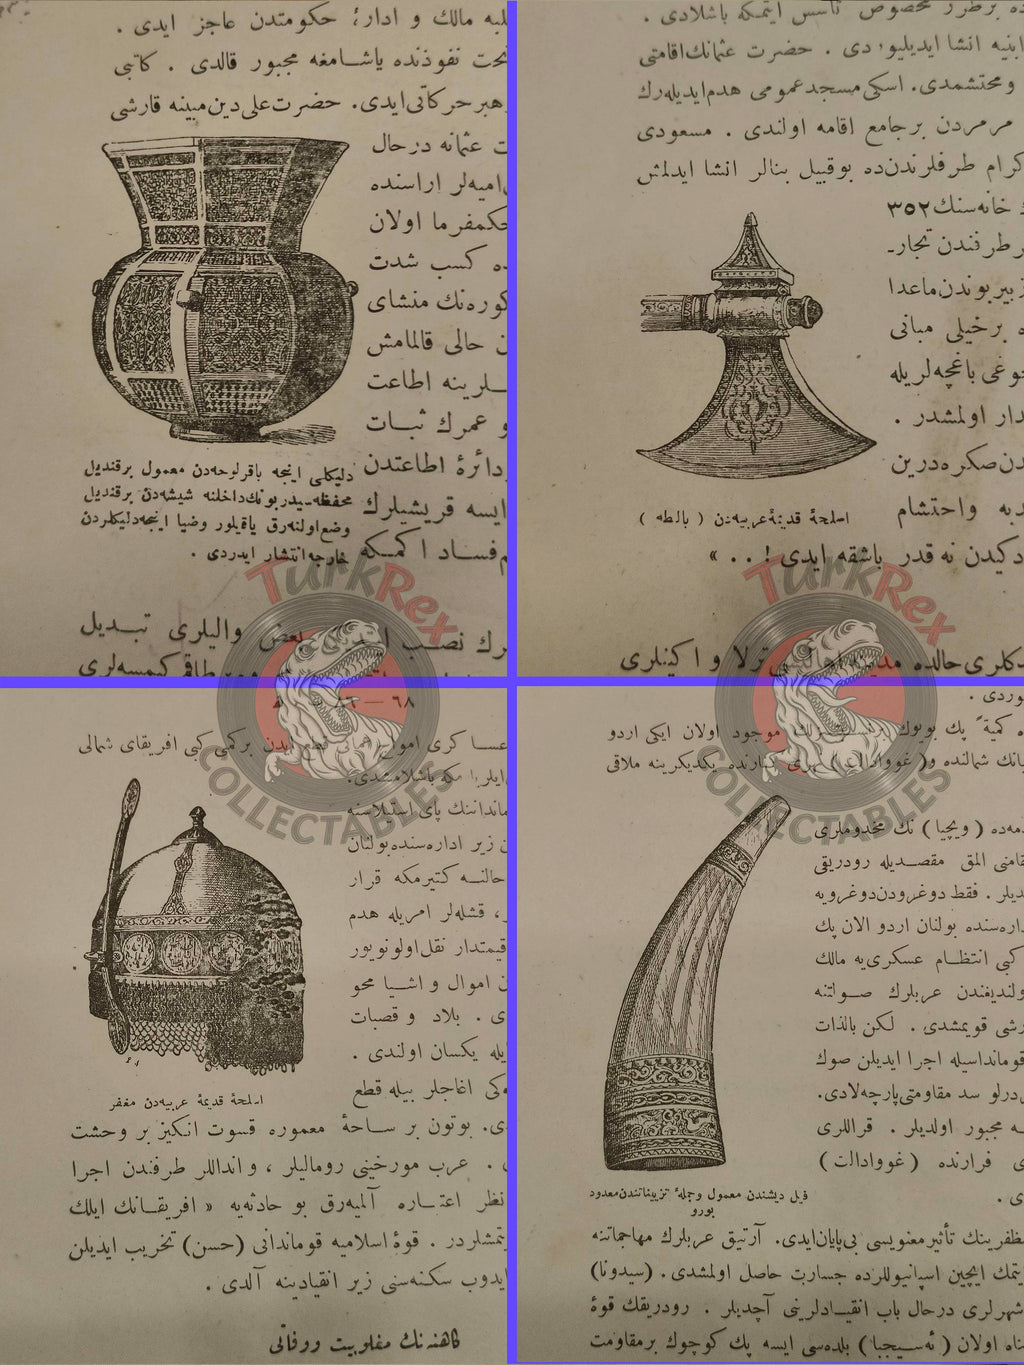 لبه مالك و ادارۀ حكومتدن عاجز ايدى .
تحت نفوذنده ياشامغه مجبور قالدى . كاتبى
هبر حركاتى ايدى. حضرت على دين مبينه قارشى
ت عثمانه درحال
اميه لر اراسنده
حكمفرما اولان
ده كسب شدت
كوره نك منشاى
ن حالى قالمامش
ـلرينه اطاعت
و عمرك ثبات
دائرۀ اطاعتدن
ايسه قريشيلرك
م فساد اكمكه
دليكلى اينجه باقر لوحه دن معمول بر قنديل
محفظه سيدر بونك داخلنه شيشه دن بر قنديل
وضع اولنه رق ياقيلور وضيا اينجه دليكلردن
خارجه انتشار ايدردى .
رك نصب ايتديكى بعض واليلرى تبديل
ده بر طرز مخصوص تأسيس ايتمكه باشلادى .
ابنيه انشا ايديليوردى . حضرت عثمانك اقامتى
ومحتشمدى. اسكى مسجد عمومى هدم ايديله رك
مرمردن بر جامع اقامه اولندى . مسعودى
كرام طرفلرندن ده بو قبيل بنالر انشا ايدلمش
خانه سنك ٣٥٢
ر طرفندن تجار ـ
زبير بوندن ماعدا
ه بر خيلى مبانى
وغى باغچه لريله
دار اولمشدر .
دن صكره درين
دبه واحتشام
دكيدن نه قدر باشقه ايدى ! . . »
اسلحۀ قديمۀ عربيه دن ( بالطه )
دكلرى حالده مدينه اهاليسى ترلا و اكينلرى
٦٨ — ٨٦
عساكرى اموال قطع ايدن بركمى كبى افريقاى شمالى
ايلريلمكه باشلامشدى.
مانداننك پاى استيلاسنه
ن زير اداره سنده بولنان
حالنه كتيرمكه قرار
، قشله لر امريله هدم
قيمتدار نقل اولونويور
ن اموال و اشيا محو
ى . بلاد و قصبات
ايله يكسان اولندى .
ه كى اغاجلر بيله قطع
اسلحۀ قديمۀ عربيه دن مغفر
دى. بوتون بر ساحۀ معموره قسوت انكيز بر وحشت
. عرب مورخينى روماليلر ، و انداللر طرفندن اجرا
نظر اعتباره آلميه رق بو حادثه يه « افريقانك ايلك
يتمشلردر . قوۀ اسلاميه قوماندانى (حسن) تخريب ايديلن
ايدوب سكنه سنى زير انقيادينه آلدى .
كاهنه نك مغلوبيت و وفاتى
وردى .
ه كمية ً پك بويوك موجود اولان ايكى اردو
يانك شمالنده و( غووادالت ) نهرى كنارنده يكديكرينه ملاقى
دمه ده ( ويچيا ) نك مخدوملرى
قامنى المق مقصديله رودريقى
ديلر . فقط دوغرودن دوغرويه
داره سنده بولنان اردو الان پك
كبى انتظام عسكرى يه مالك
ولنديغندن عربلرك صولتنه
رشى قويمشدى . لكن بالذات
قومانداسيله اجرا ايديلن صوك
درلو سد مقاومتى پارچه لادى.
ـه مجبور اولديلر . قراللرى
ى فرارنده ( غووادالت )
دى .
فيل ديشندن معمول وجملۀ تزييناتندن معدود
بورو
مظفرينك تأثير معنويسى بى پايان ايدى. آرتيق عربلرك مهاجماتنه
ايتمك ايچين اسپانيوللرده جسارت حاصل اولمشدى. (سيدونا)
شهرلرى درحال باب انقيادلرينى آچديلر . رودريقك قوۀ
ناه اولان ( ئه سيجا ) بلده سى ايسه پك كوچوك بر مقاومت
TurkRex
COLLECTABLES
TurkRex
COLLECTABLES